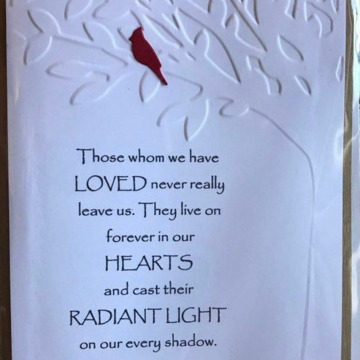 Those whom we have
LOVED never really
leave us. They live on
forever in our
HEARTS
and cast their
RADIANT LIGHT
on our every shadow.